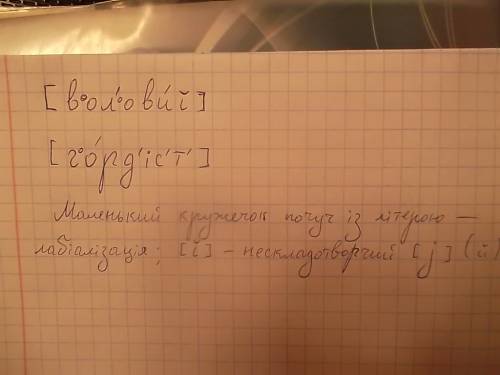 [в°ол'°ови́ĭ]
[г°о́рд'іс'т']
Маленький кружечок поруч із літерою —
лабіалізація; [ĭ] – нескладотворчий [j] (й)